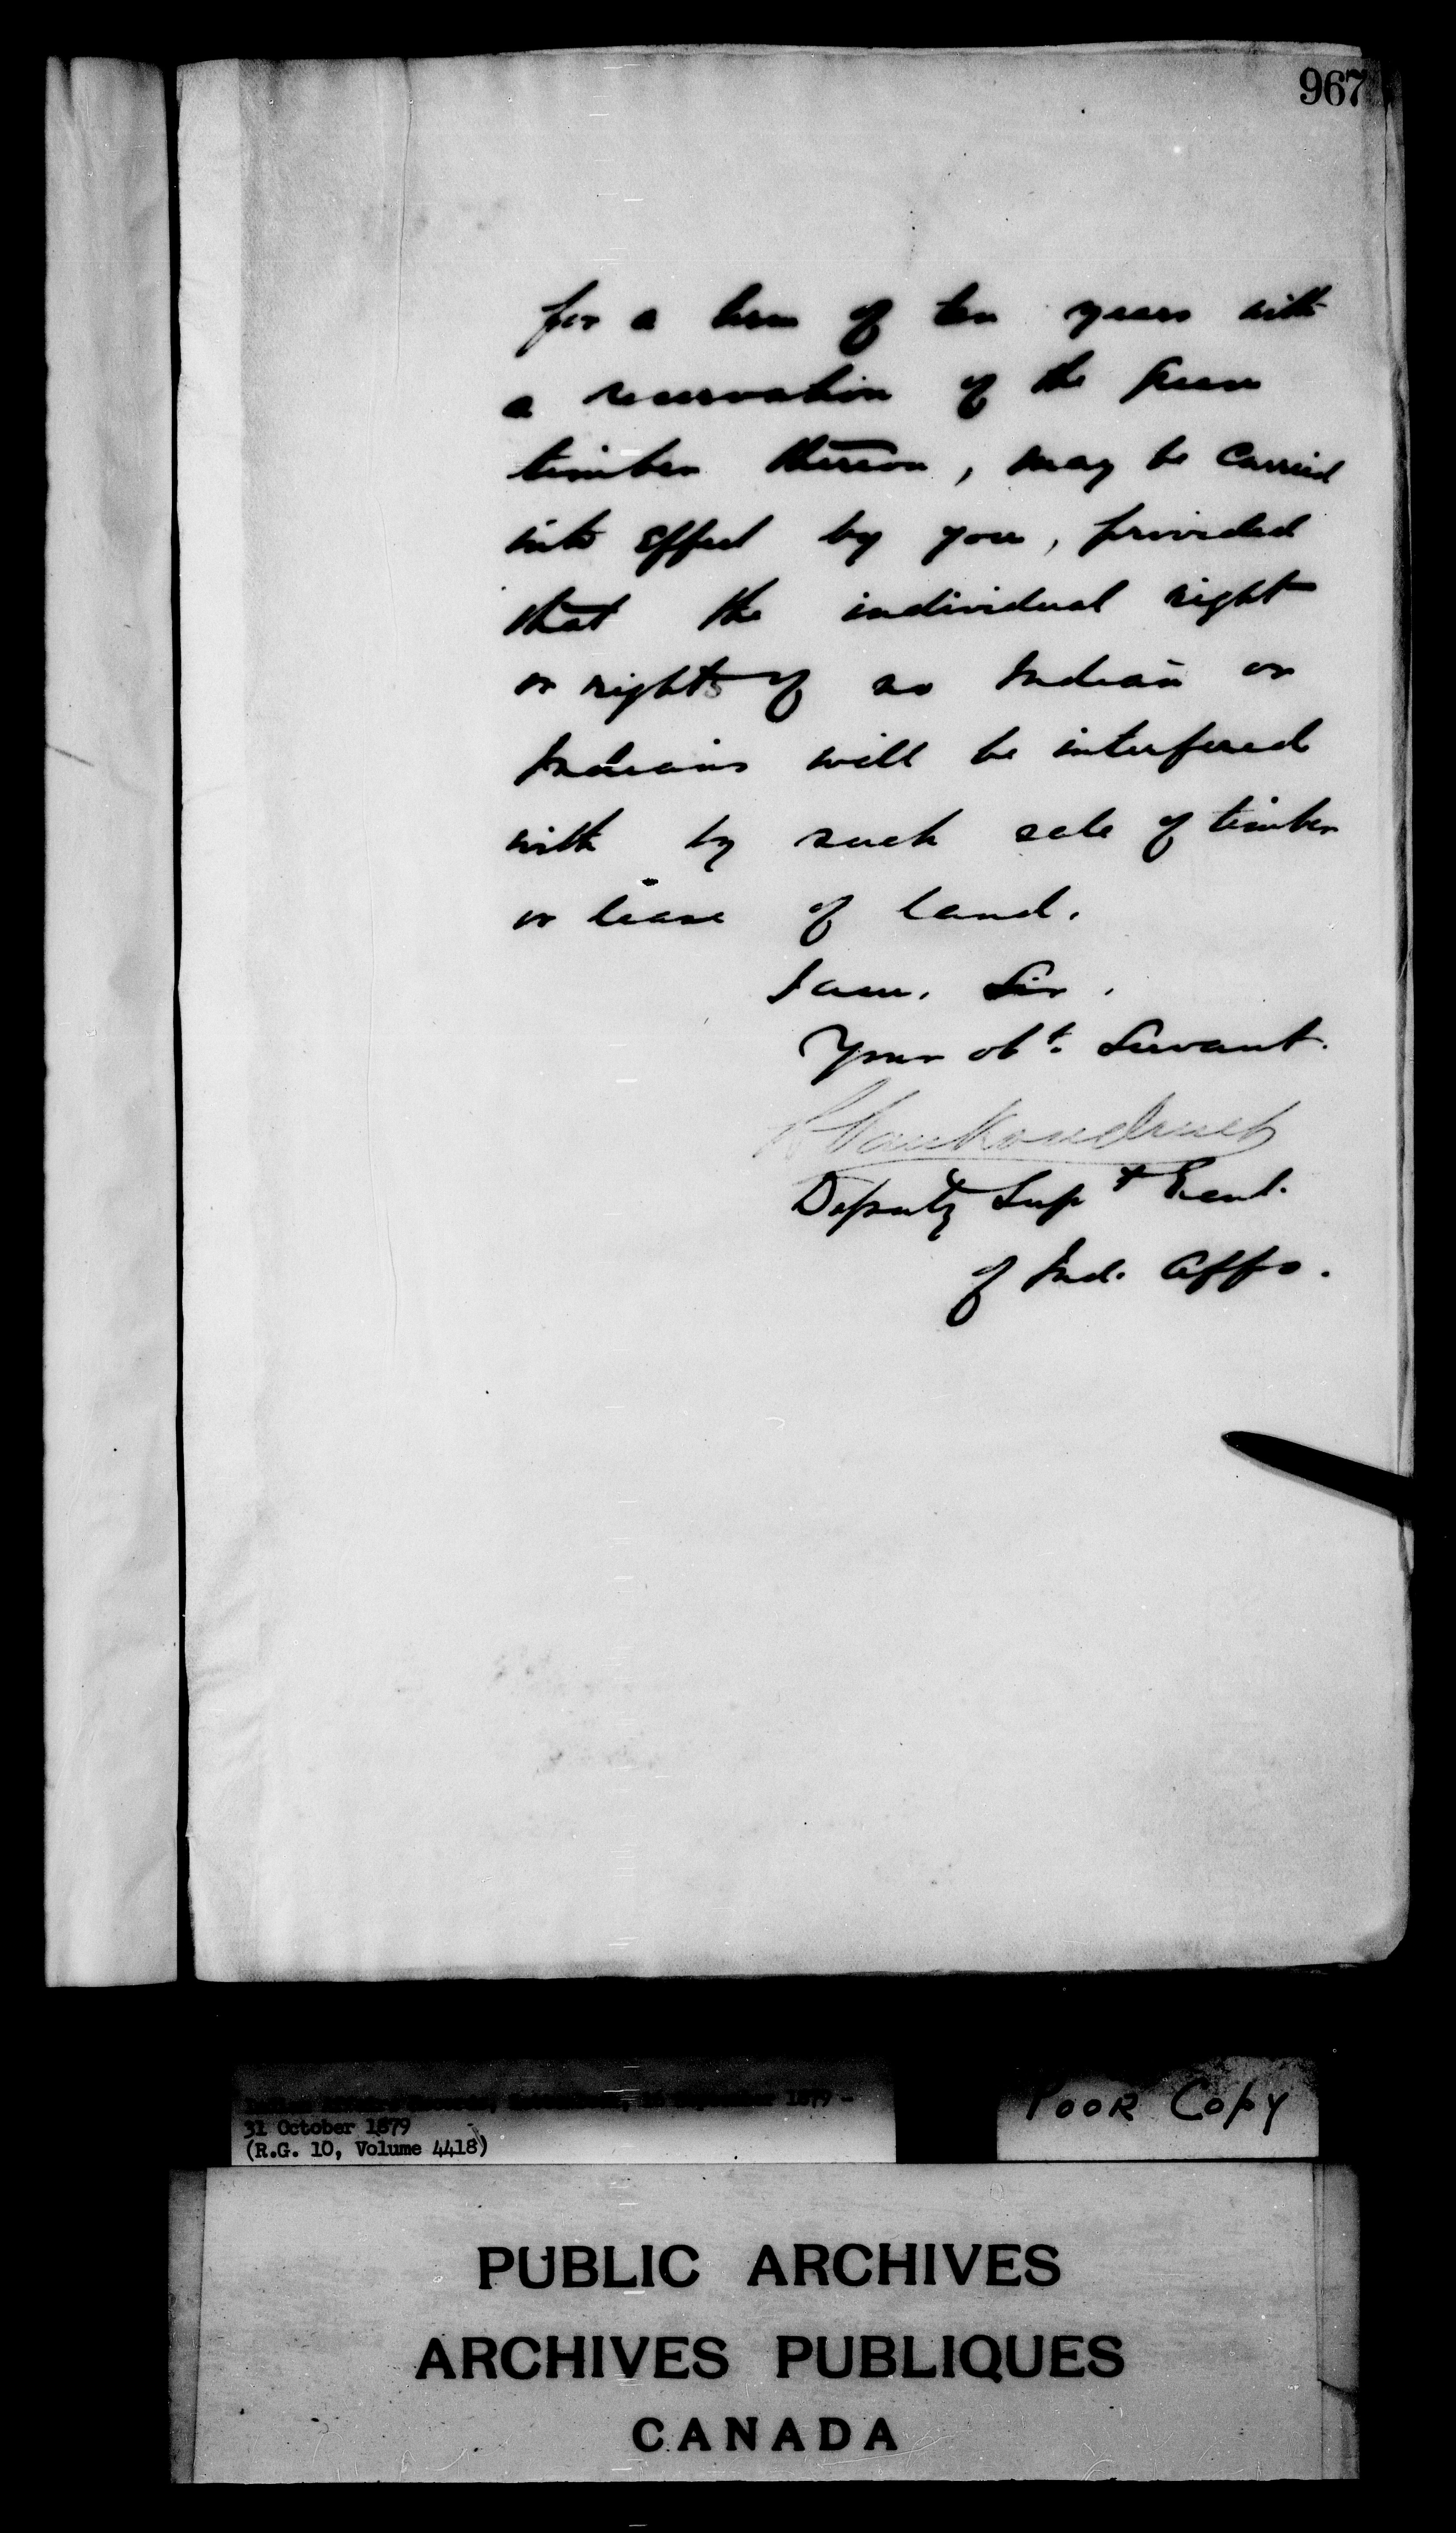 967
for a term of ten years with
a reservation of the green
timber thereon, may be carried
into effect by you, provided
that the individual right
or rights of no Indian or
Indians will be interfered
with by such sale of timber
or lease of land.
I am. Sir.
Your obt. Servant.
L VanKoughnet
Deputy Supt Genl.
of Ind. Affs.
1879 -
31 October 1879
(R.G. 10, Volume 4418)
POOR COPY
PUBLIC ARCHIVES
ARCHIVES PUBLIQUES
CANADA